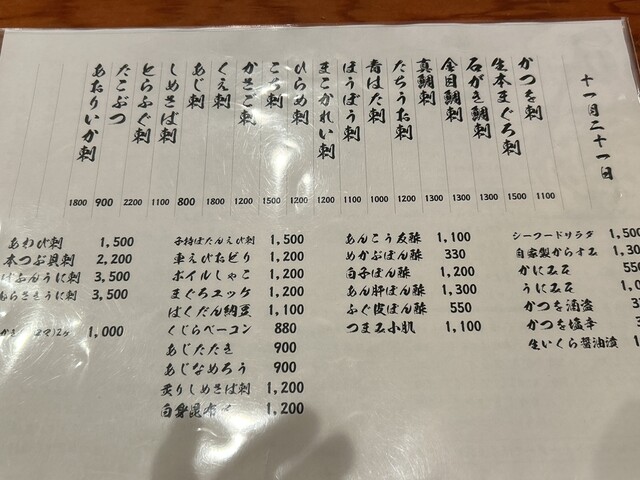 十一月二十一日
かつを刺 1100
生本まぐろ刺 1500
石がき鯛刺 1300
金目鯛刺 1300
真鯛刺 1300
たちうお刺 1200
青はた刺 1000
ほうぼう刺 1100
まこかれい刺 1200
ひらめ刺 1200
こち刺 1500
かさご刺 1200
くえ刺 1800
あじ刺 800
しめさば刺 1100
とらふぐ刺 2200
たこぶつ 900
あたりいか刺 1800
あわび刺 1,500
本つぶ貝刺 2,200
ばふんうに刺 3,500
むらさきうに刺 3,500
1,000
子持ぼたんえび刺 1,500
車えびおどり 1,200
ボイルしゃこ 1,200
まぐろユッケ 1,200
ばくだん納豆 1,100
くじらベーコン 880
あじたたき 900
あじなめろう 900
炙りしめさば刺 1,200
白身昆布〆 1,200
あんこう友酢 1,100
めかぶぽん酢 330
白子ぽん酢 1,200
あん肝ぽん酢 1,300
ふぐ皮ぽん酢 550
つまみ小肌 1,100
シーフードサラダ 1,500
自家製からすみ 1,30
かにみそ 550
うにみそ 1,0
かつを酒盗
かつを塩辛
生いくら醤油漬